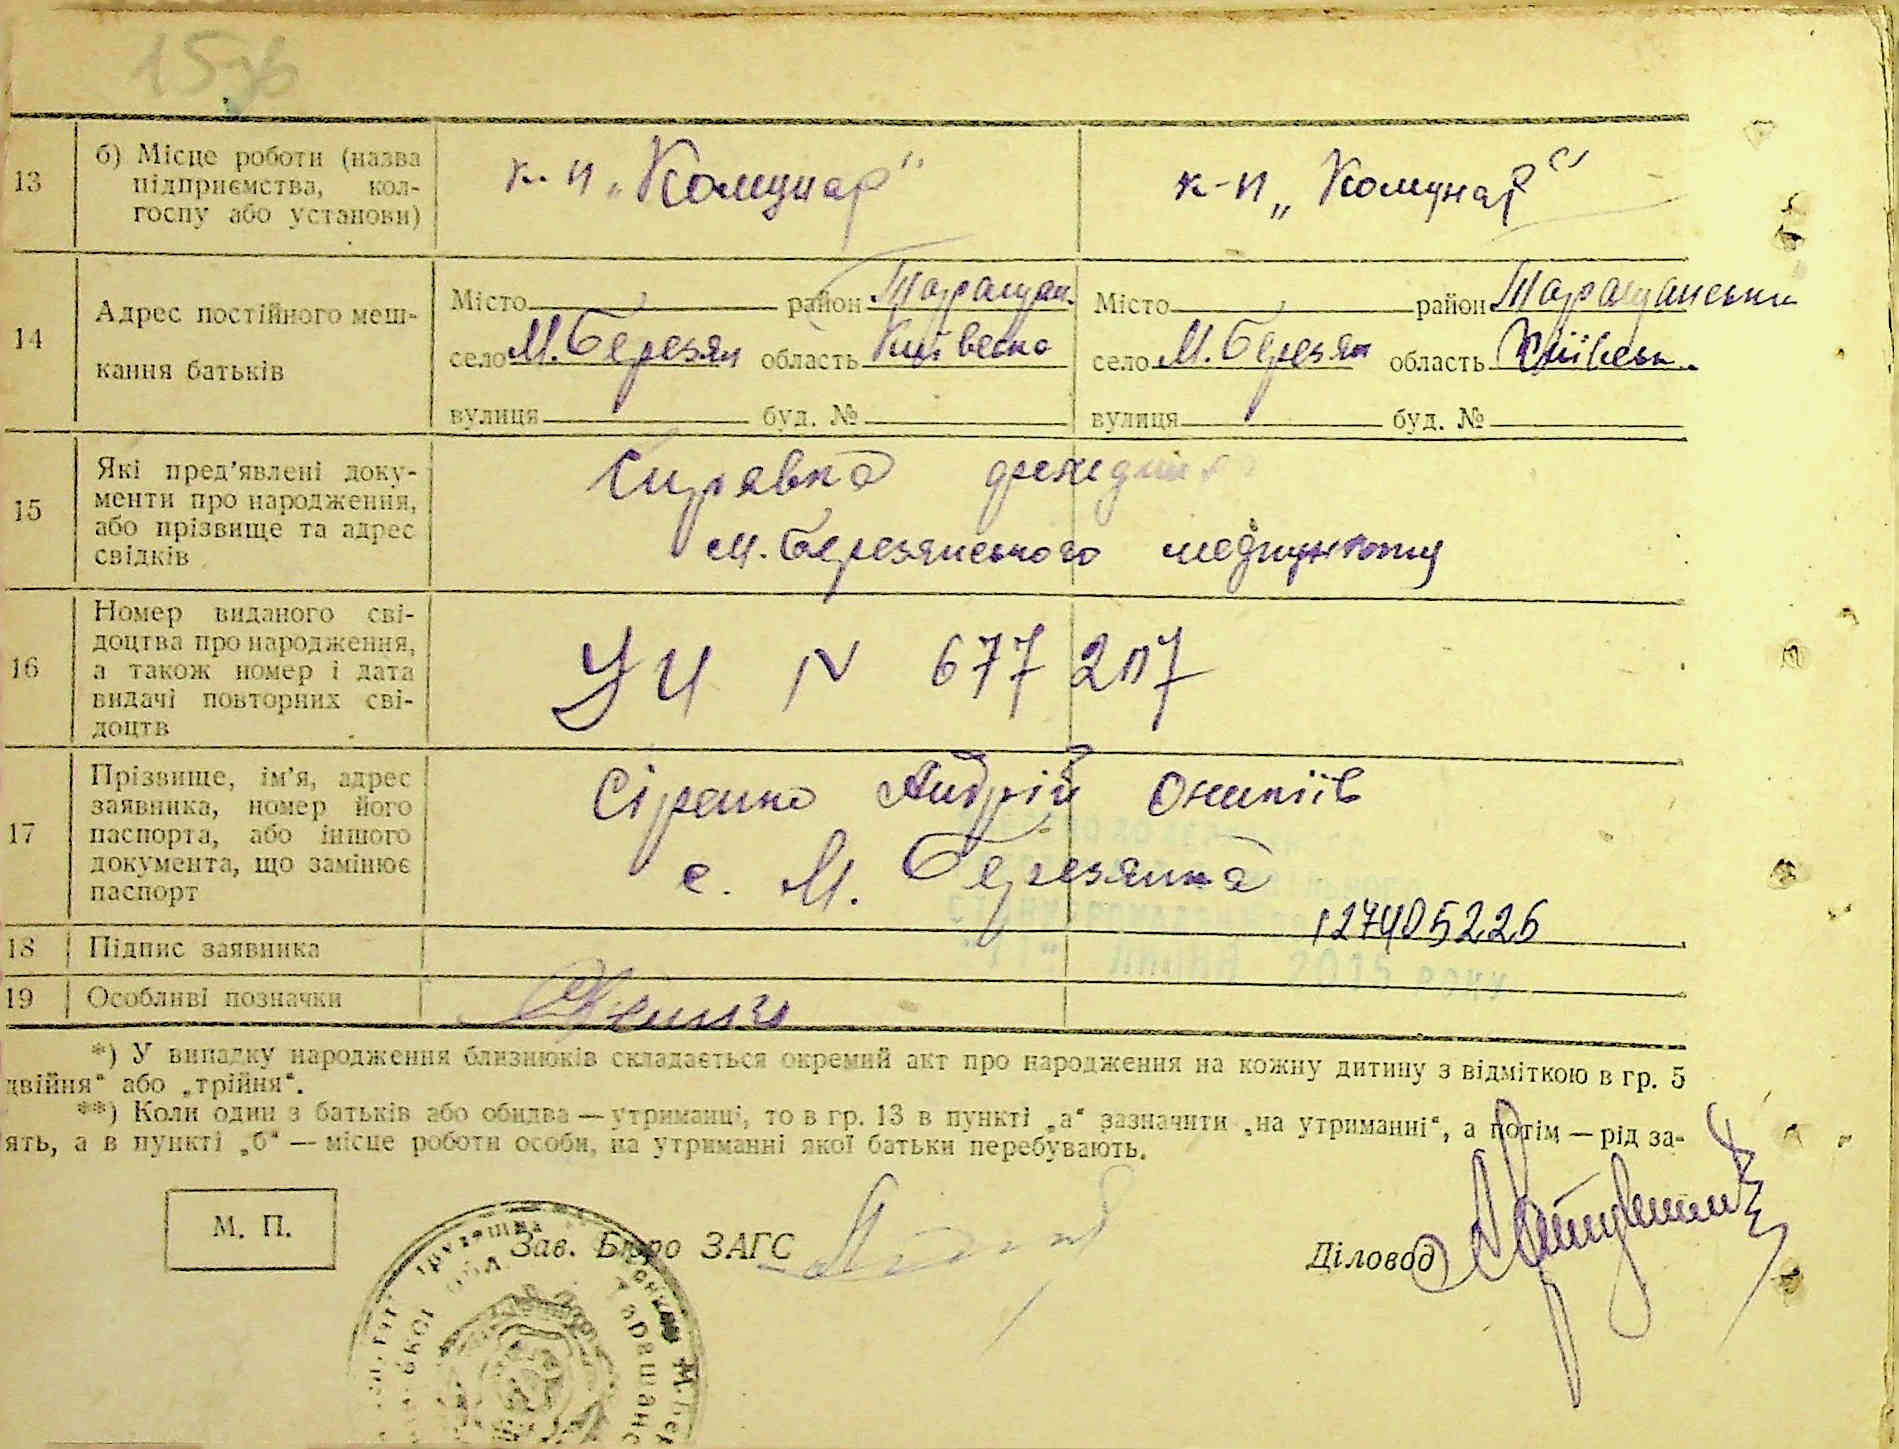 13
б) Місце роботи (назва
підприємства, кол-
госпу або установи)
к-п „Комунар"
к-п „Комунар"
14
Адрес постійного меш-
кання батьків
Місто район Таращан.
село М. Березян область Київська
вулиця буд. №
Місто район Таращанськи
село М. Березян область Київськ.
вулиця буд. №
15
Які пред'явлені доку-
менти про народження,
або прізвище та адрес
свідків
Справка
М. Березянського медпункту
16
Номер виданого сві-
доцтва про народження,
а також номер і дата
видачі повторних сві-
доцтв
N 677
17
Прізвище, ім'я, адрес
заявника, номер його
паспорта, або іншого
документа, що замінює
паспорт
Андрій
с. М. Березянка
127405226
18 Підпис заявника
2015 РОКУ
19 Особливі позначки
*) У випадку народження близнюків складається окремий акт про народження на кожну дитину з відміткою в гр. 5
двійня" або „трійня".
**) Коли один з батьків або обидва — утриманці, то в гр. 13 в пункті „а" зазначити „на утриманні", а потім — рід за-
ять, а в пункті „б" — місце роботи особи, на утриманні якої батьки перебувають.
М. П.
Зав. Бюро ЗАГС
Діловод